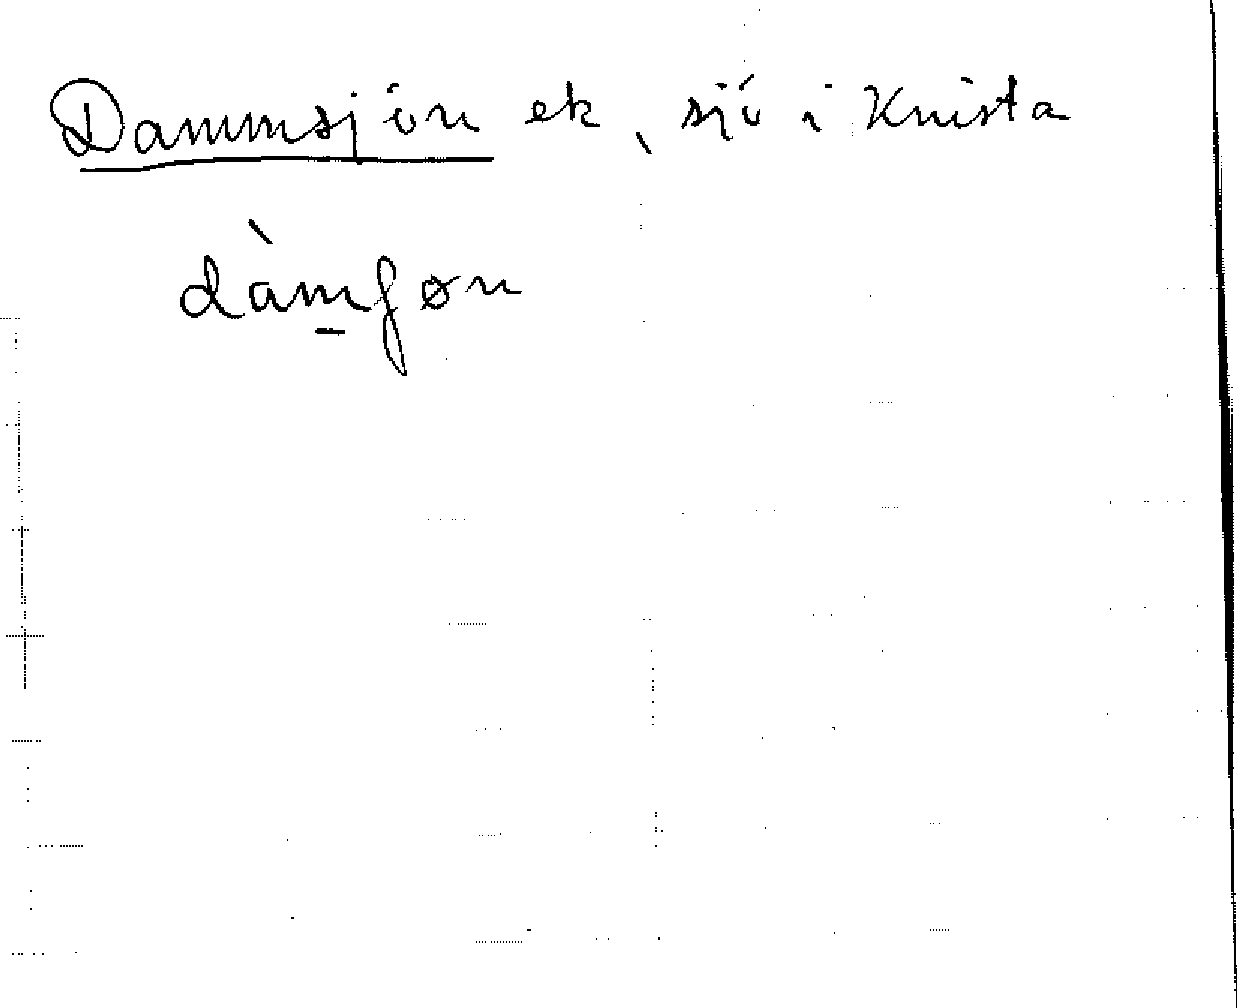 Dammsjön ek, sjö i Knista
dàm̲ʃøn